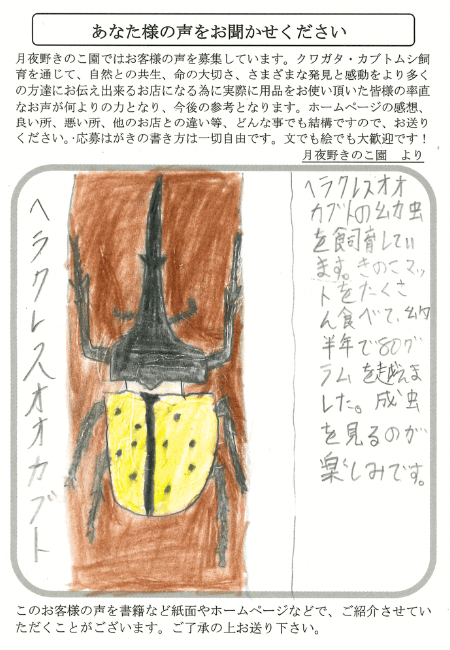 あなた様の声をお聞かせください
月夜野きのこ園ではお客様の声を募集しています。クワガタ・カブトムシ飼
育を通じて、自然との共生、命の大切さ、さまざまな発見と感動をより多く
の方達にお伝え出来るお店になる為に実際に用品をお使い頂いた皆様の率直
なお声が何よりの力となり、今後の参考となります。ホームページの感想、
良い所、悪い所、他のお店との違い等、どんな事でも結構ですので、お送り
ください。応募はがきの書き方は一切自由です。文でも絵でも大歓迎です！
月夜野きのこ園　より
ヘラクレスオオカブト
ヘラクレスオオ
カブトの幼虫
を飼育してい
ます。きのこマッ
トをたくさ
ん食べて、約
半年で80グ
ラムを越えま
した。成虫
を見るのが
楽しみです。
このお客様の声を書籍など紙面やホームページなどで、ご紹介させてい
ただくことがございます。ご了承の上お送り下さい。